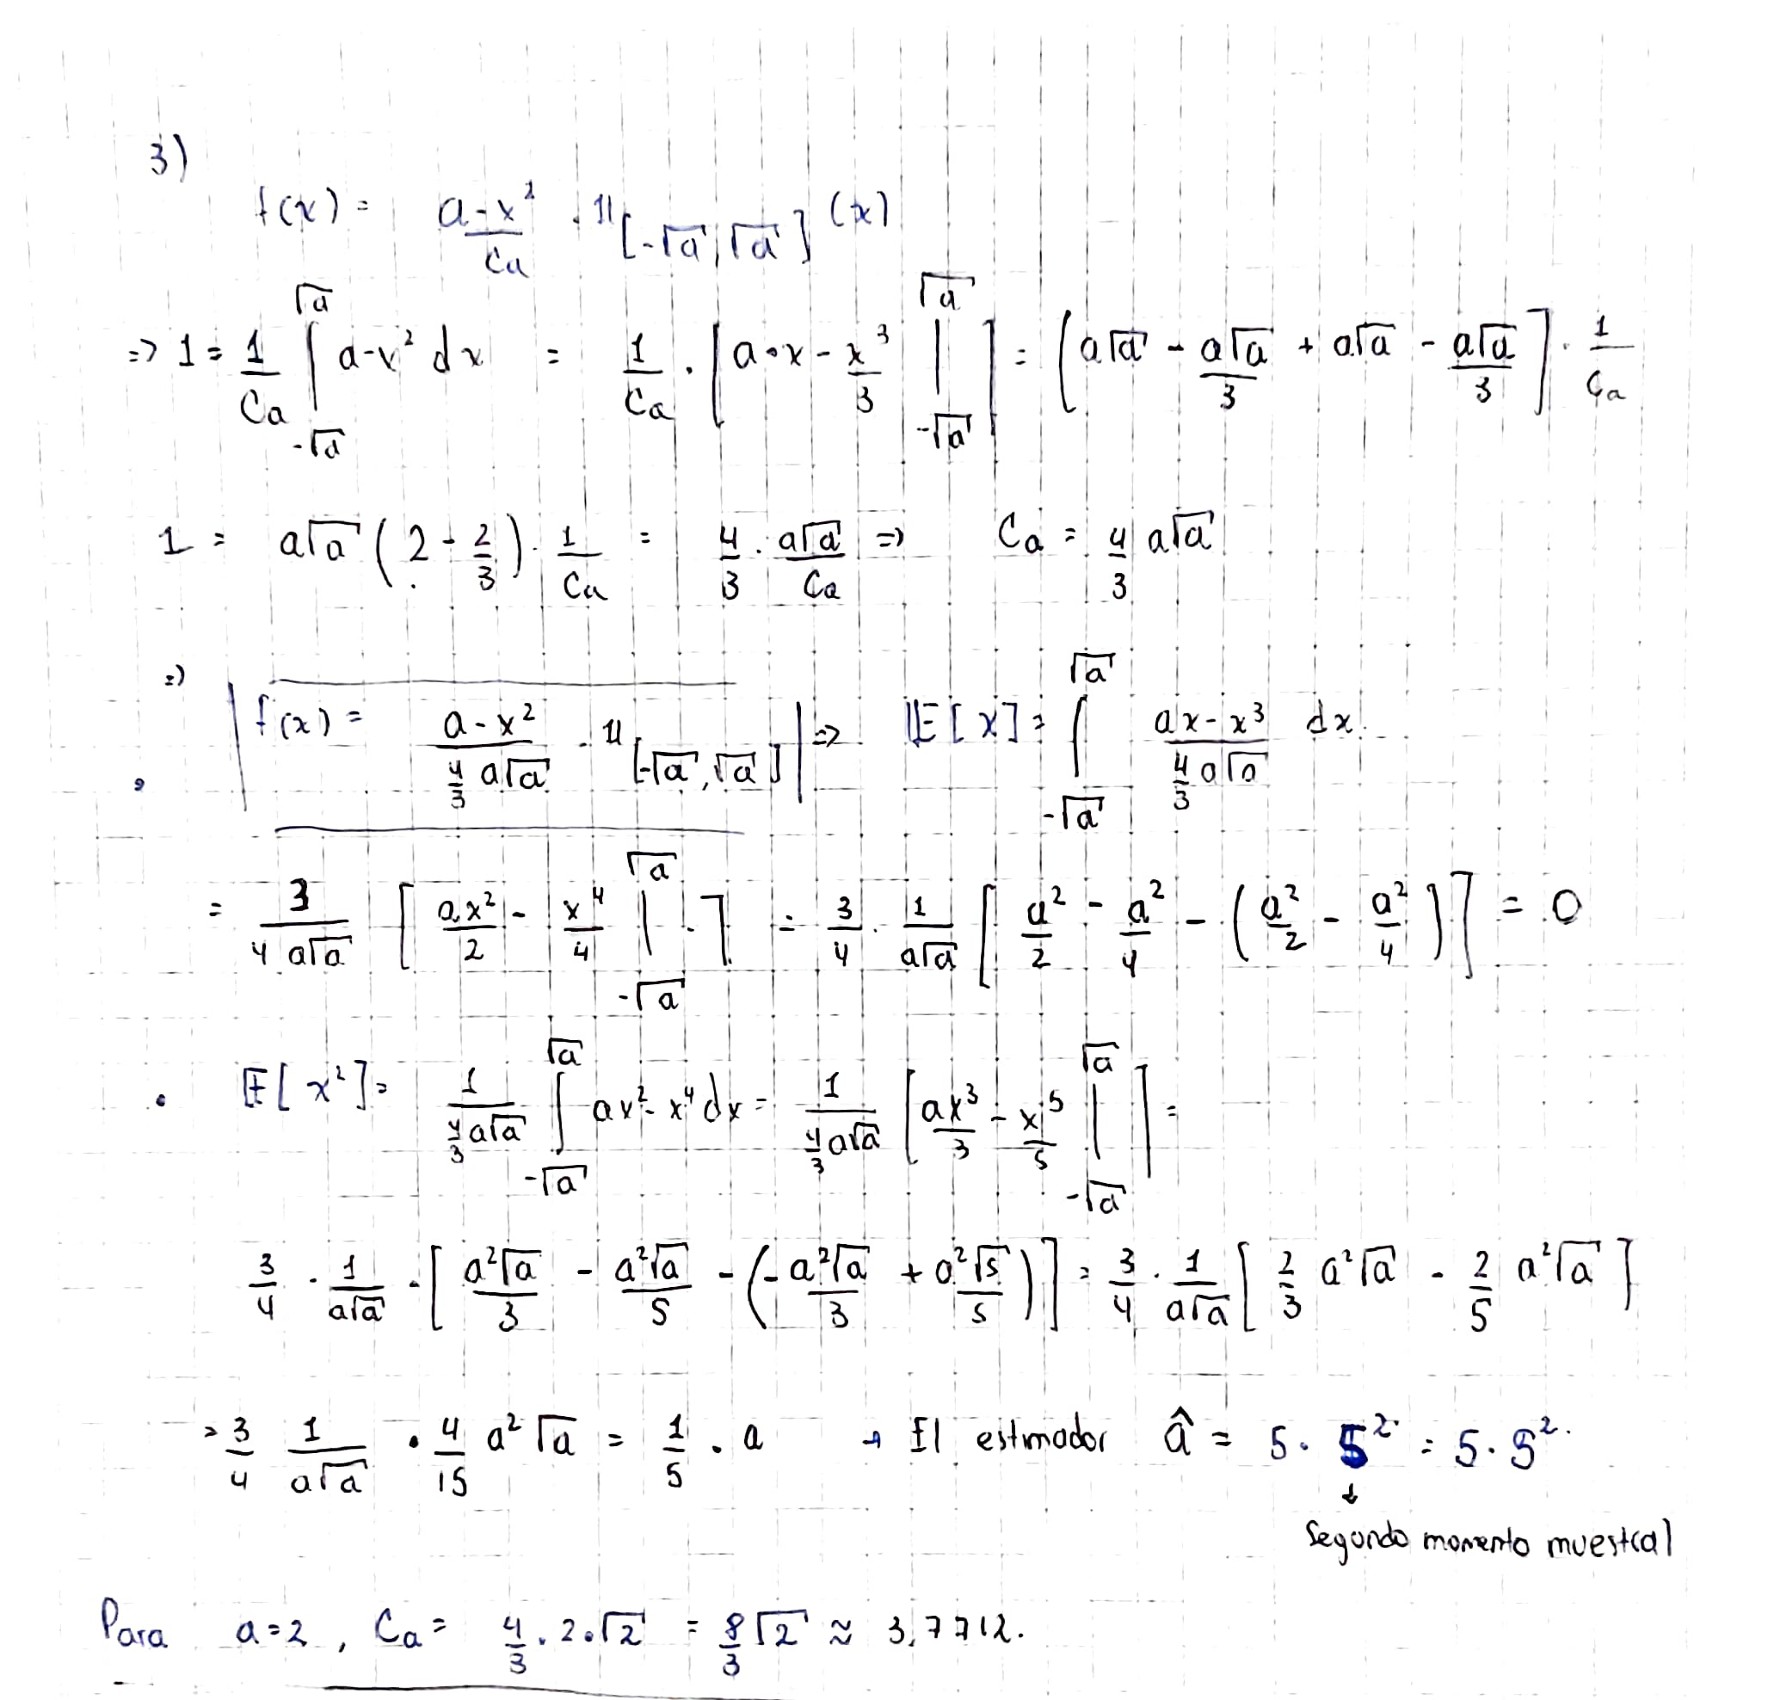 3)
f(x) = (a-x²)/Ca · 𝟙[-√a, √a] (x)
=> 1 = 1/Ca ∫_{-√a}^{√a} a-x² dx = 1/Ca · [a·x - x³/3 |_{-√a}^{√a}] = [a√a - a√a/3 + a√a - a√a/3] · 1/Ca
1 = a√a (2 - 2/3) · 1/Ca = 4/3 · a√a/Ca => Ca = 4/3 a√a
=> f(x) = (a-x²)/(4/3 a√a) · 𝟙[-√a, √a] => 𝔼[X] = ∫_{-√a}^{√a} (ax-x³)/(4/3 a√a) dx
= 3/(4 a√a) [ax²/2 - x⁴/4 |_{-√a}^{√a}] = 3/4 · 1/(a√a) [a²/2 - a²/4 - (a²/2 - a²/4)] = 0
• 𝔼[x²] = 1/(4/3 a√a) ∫_{-√a}^{√a} ax² - x⁴ dx = 1/(4/3 a√a) [ax³/3 - x⁵/5 |_{-√a}^{√a}] =
3/4 · 1/(a√a) · [a²√a/3 - a²√a/5 - (-a²√a/3 + a²√5/5)] = 3/4 · 1/(a√a) [2/3 a²√a - 2/5 a²√a]
= 3/4 1/(a√a) · 4/15 a²√a = 1/5 · a → El estimador â = 5 · S² = 5 · S².
↓
Segundo momento muestral
Para a=2, Ca = 4/3 · 2 · √2 = 8/3 √2 ≈ 3,7712.